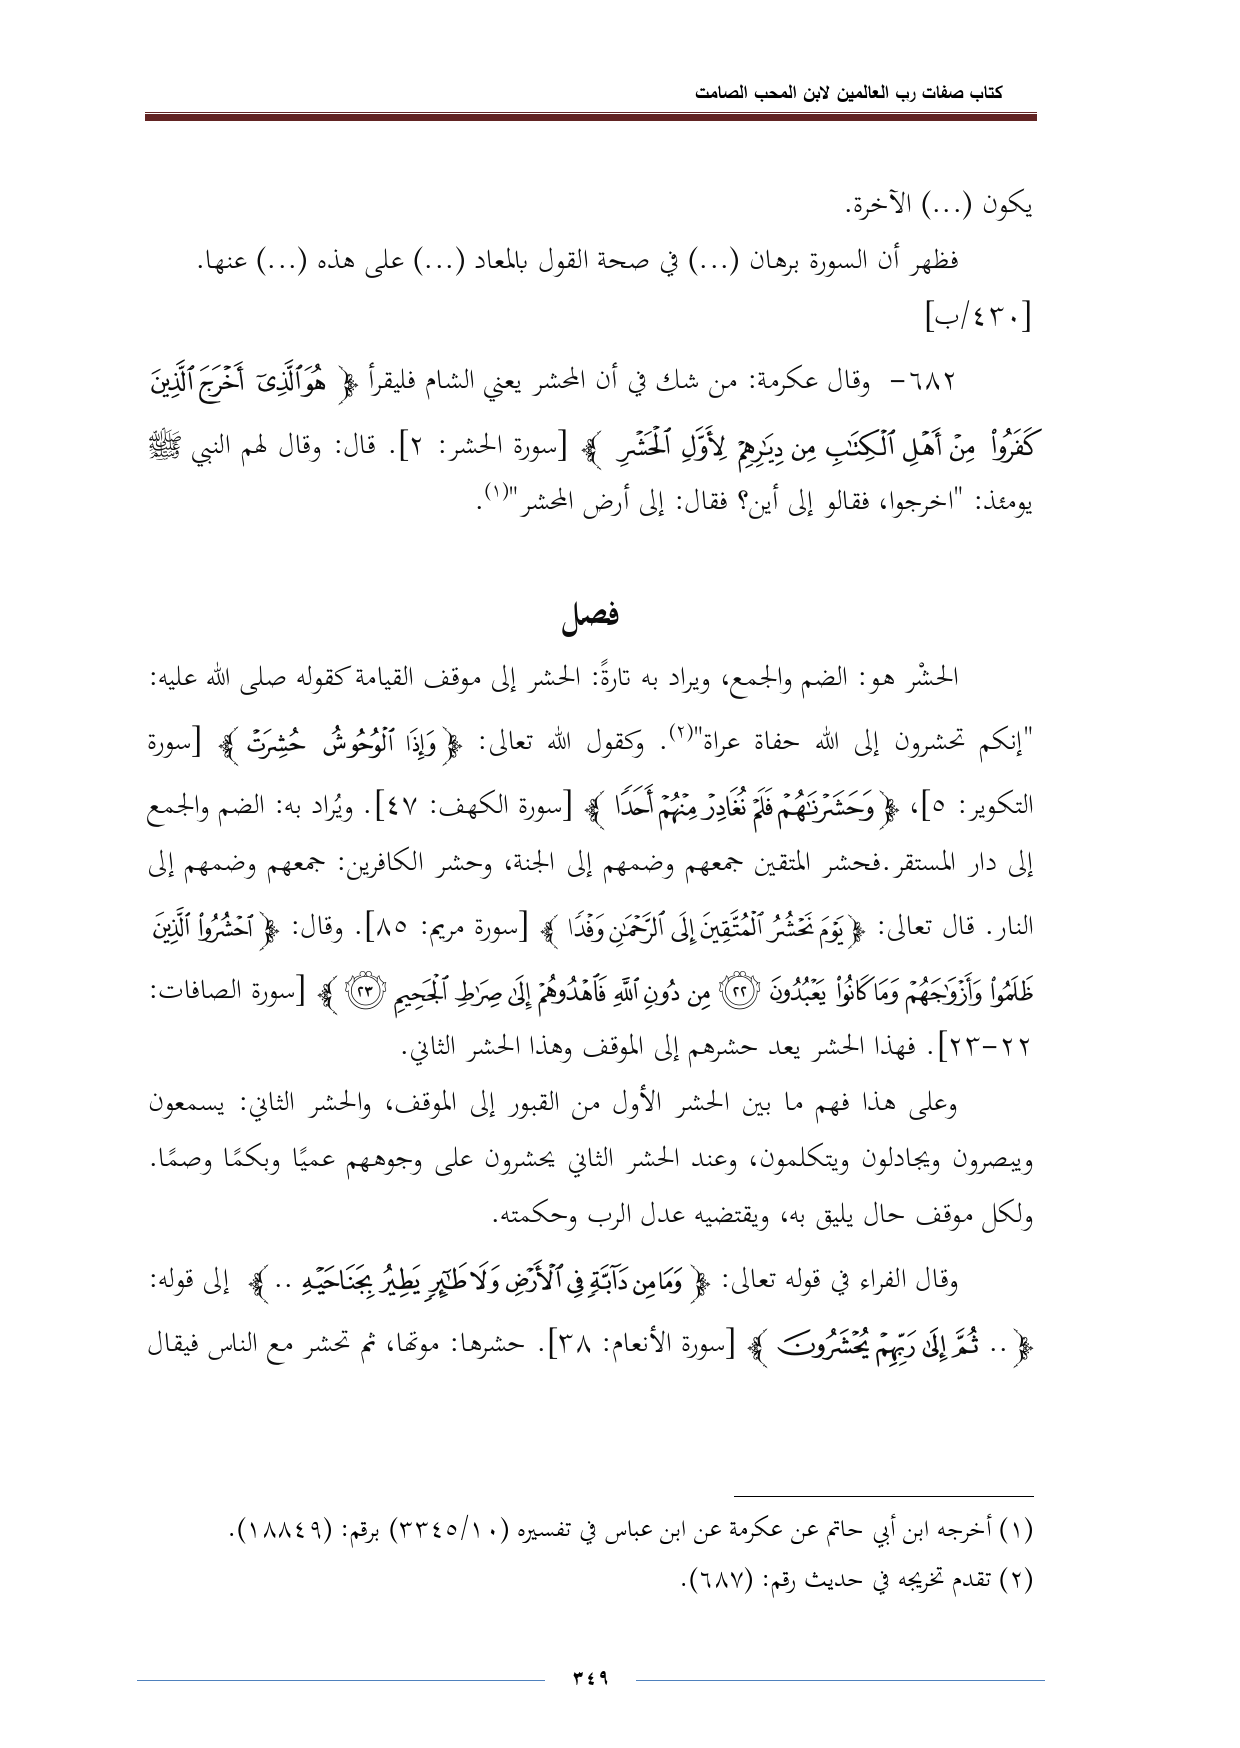 كتاب صفات رب العالمين لابن المحب الصامت
يكون (...) الآخرة.
فظهر أن السورة برهان (...) في صحة القول بالمعاد (...) على هذه (...) عنها.
[٤٣٠/ب]
٦٨٢- وقال عكرمة: من شك في أن المحشر يعني الشام فليقرأ ﴿ هُوَ ٱلَّذِىٓ أَخْرَجَ ٱلَّذِينَ
كَفَرُوا۟ مِنْ أَهْلِ ٱلْكِتَٰبِ مِن دِيَٰرِهِمْ لِأَوَّلِ ٱلْحَشْرِ ﴾ [سورة الحشر: ٢]. قال: وقال لهم النبي ﷺ
يومئذ: "اخرجوا، فقالو إلى أين؟ فقال: إلى أرض المحشر"(١).
فصل
الحشْر هو: الضم والجمع، ويراد به تارةً: الحشر إلى موقف القيامة كقوله صلى الله عليه:
"إنكم تحشرون إلى الله حفاة عراة"(٢). وكقول الله تعالى: ﴿ وَإِذَا ٱلْوُحُوشُ حُشِرَتْ ﴾ [سورة
التكوير: ٥]، ﴿ وَحَشَرْنَٰهُمْ فَلَمْ نُغَادِرْ مِنْهُمْ أَحَدًا ﴾ [سورة الكهف: ٤٧]. ويُراد به: الضم والجمع
إلى دار المستقر.فحشر المتقين جمعهم وضمهم إلى الجنة، وحشر الكافرين: جمعهم وضمهم إلى
النار. قال تعالى: ﴿ يَوْمَ نَحْشُرُ ٱلْمُتَّقِينَ إِلَى ٱلرَّحْمَٰنِ وَفْدًا ﴾ [سورة مريم: ٨٥]. وقال: ﴿ ٱحْشُرُوا۟ ٱلَّذِينَ
ظَلَمُوا۟ وَأَزْوَٰجَهُمْ وَمَا كَانُوا۟ يَعْبُدُونَ ٢٢ مِن دُونِ ٱللَّهِ فَٱهْدُوهُمْ إِلَىٰ صِرَٰطِ ٱلْجَحِيمِ ٢٣ ﴾ [سورة الصافات:
٢٢-٢٣]. فهذا الحشر يعد حشرهم إلى الموقف وهذا الحشر الثاني.
وعلى هذا فهم ما بين الحشر الأول من القبور إلى الموقف، والحشر الثاني: يسمعون
ويبصرون ويجادلون ويتكلمون، وعند الحشر الثاني يحشرون على وجوههم عميًا وبكمًا وصمًا.
ولكل موقف حال يليق به، ويقتضيه عدل الرب وحكمته.
وقال الفراء في قوله تعالى: ﴿ وَمَا مِن دَآبَّةٍ فِى ٱلْأَرْضِ وَلَا طَٰٓئِرٍ يَطِيرُ بِجَنَاحَيْهِ .. ﴾ إلى قوله:
﴿ .. ثُمَّ إِلَىٰ رَبِّهِمْ يُحْشَرُونَ ﴾ [سورة الأنعام: ٣٨]. حشرها: موتها، ثم تحشر مع الناس فيقال
(١) أخرجه ابن أبي حاتم عن عكرمة عن ابن عباس في تفسيره (٣٣٤٥/١٠) برقم: (١٨٨٤٩).
(٢) تقدم تخريجه في حديث رقم: (٦٨٧).
٣٤٩